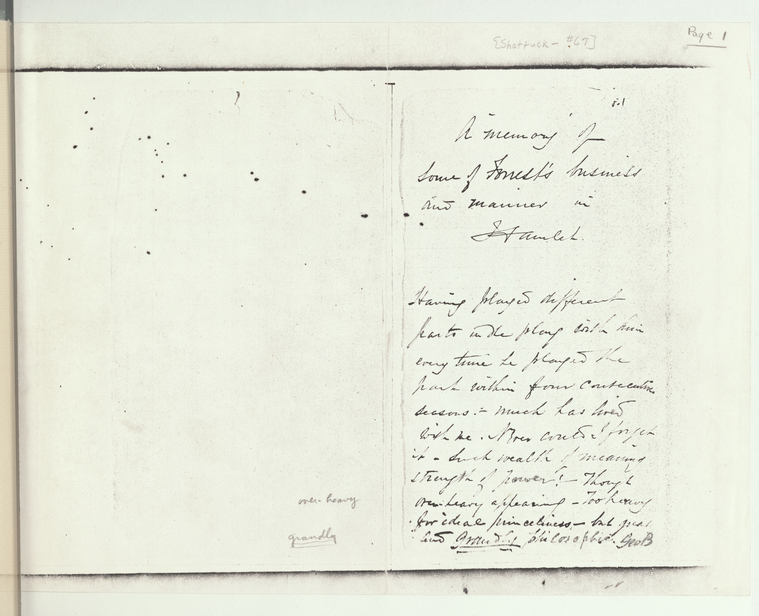 [Shattuck - #67]
Page 1
A "memory" of
some of Forrest's business
and manner in
Hamlet.
Having played different
parts in the play with him
every time he played the
part within four consecutive
seasons:- much has lived
with me. Never could I forget
it - such wealth of meaning
strength of power! - Though
over-heavy appearing - Too heavy
for ideal princeliness - but great
and Grandly philosophic. GeoB
over-heavy
grandly